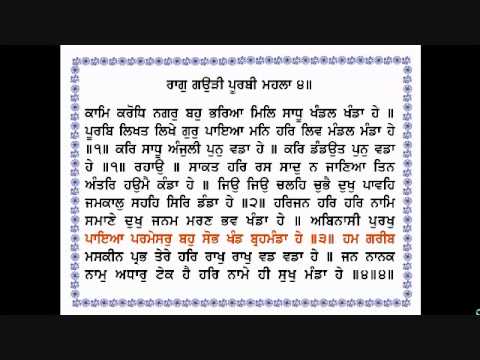 ਰਾਗੁ ਗਉੜੀ ਪੂਰਬੀ ਮਹਲਾ ੪॥
ਕਾਮਿ ਕਰੋਧਿ ਨਗਰੁ ਬਹੁ ਭਰਿਆ ਮਿਲਿ ਸਾਧੂ ਖੰਡਲ ਖੰਡਾ ਹੇ ॥
ਪੂਰਬਿ ਲਿਖਤ ਲਿਖੇ ਗੁਰੁ ਪਾਇਆ ਮਨਿ ਹਰਿ ਲਿਵ ਮੰਡਲ ਮੰਡਾ ਹੇ
॥੧॥ ਕਰਿ ਸਾਧੂ ਅੰਜੁਲੀ ਪੁਨੁ ਵਡਾ ਹੇ ॥ ਕਰਿ ਡੰਡਉਤ ਪੁਨੁ ਵਡਾ
ਹੇ ॥੧॥ ਰਹਾਉ ॥ ਸਾਕਤ ਹਰਿ ਰਸ ਸਾਦੁ ਨ ਜਾਣਿਆ ਤਿਨ
ਅੰਤਰਿ ਹਉਮੈ ਕੰਡਾ ਹੇ ॥ ਜਿਉ ਜਿਉ ਚਲਹਿ ਚੁਭੈ ਦੁਖੁ ਪਾਵਹਿ
ਜਮਕਾਲੁ ਸਹਹਿ ਸਿਰਿ ਡੰਡਾ ਹੇ ॥੨॥ ਹਰਿਜਨ ਹਰਿ ਹਰਿ ਨਾਮਿ
ਸਮਾਣੇ ਦੁਖੁ ਜਨਮ ਮਰਣ ਭਵ ਖੰਡਾ ਹੇ ॥ ਅਬਿਨਾਸੀ ਪੁਰਖੁ
ਪਾਇਆ ਪਰਮੇਸਰੁ ਬਹੁ ਸੋਭ ਖੰਡ ਬ੍ਰਹਮੰਡਾ ਹੇ ॥੩॥ ਹਮ ਗਰੀਬ
ਮਸਕੀਨ ਪ੍ਰਭ ਤੇਰੇ ਹਰਿ ਰਾਖੁ ਰਾਖੁ ਵਡ ਵਡਾ ਹੇ ॥ ਜਨ ਨਾਨਕ
ਨਾਮੁ ਅਧਾਰੁ ਟੇਕ ਹੈ ਹਰਿ ਨਾਮੇ ਹੀ ਸੁਖੁ ਮੰਡਾ ਹੇ ॥੪॥੪॥